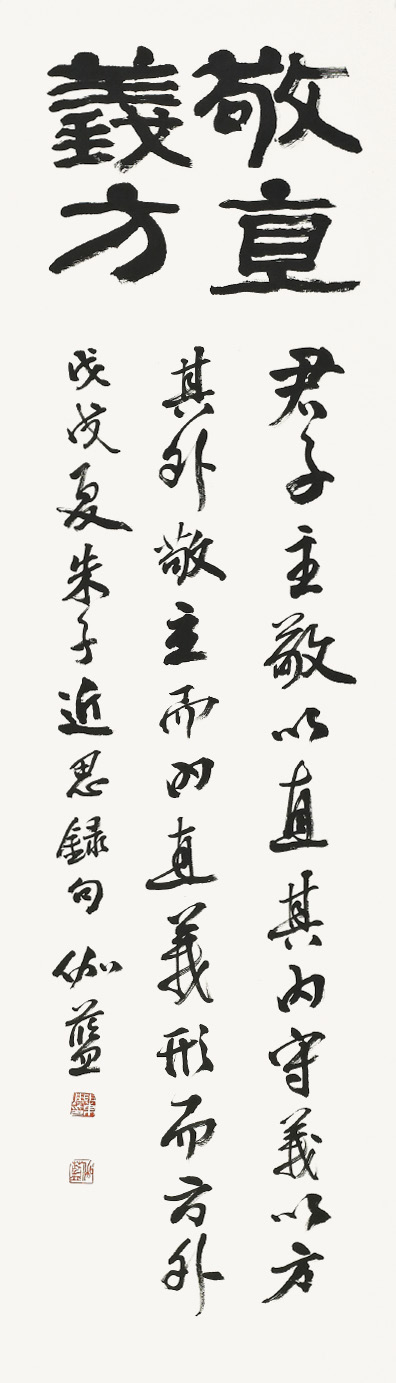 敬直
義方
君子主敬以直其內守義以方
其外敬主而內直義形而方外
戊戌夏朱子近思録句 伽藍